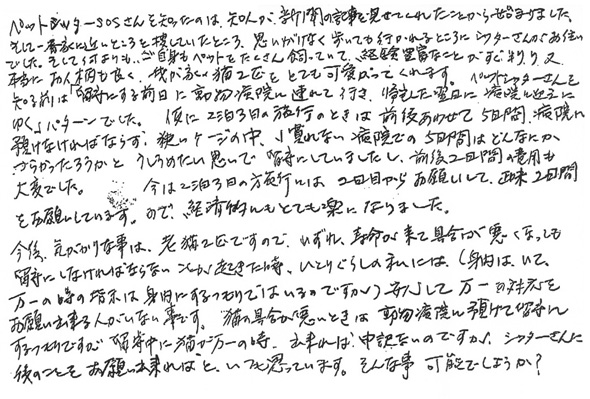 ペットシッターSOSさんを知ったのは、知人が、新聞の記事を見せてくれたことから始まりました。
そして一番家に近いところを探していたところ、思いがけなく歩いても行かれるところにシッターさんがお住い
でした。そして何よりも、ご自身もペットをたくさん飼っていて、経験豊富なことがすぐ判り、又
本当にお人柄も良く、我が家の猫2匹をとても可愛がってくれます。ペットシッターさんを
知る前は「留守にする前日に動物病院に連れて行き、帰宅した翌日に病院に迎えに
ゆく」パターンでした。仮に2泊3日の旅行のときは前後あわせて5日間、病院に
預けなければならず、狭いケージの中、慣れない病院での5日間はどんなにか
つらかったろうかとうしろめたい思いで留守にしていましたし、前後2日間の費用も
大変でした。今は2泊3日の旅行には、2日目からお願いして、正味2日間
をお願いしています。ので、経済的にもとても楽になりました。
今後、気がかりな事は、老猫2匹ですので、いずれ、寿命が来て具合が悪くなっても
留守にしなければならない 起きた時、ひとりぐらしの私には、(身内は、いて、
万一の時の指示は身内にするつもりではいるのですが) 安心して万一の対応を
お願い出来る人がいない事です。猫の具合が悪いときは動物病院に預けて留守に
するつもりですが留守中に猫が万一の時、出来れば、申訳ないのですが、シッターさんに
後のことをお願い出来ればと、いつも思っています。そんな事可能でしょうか?